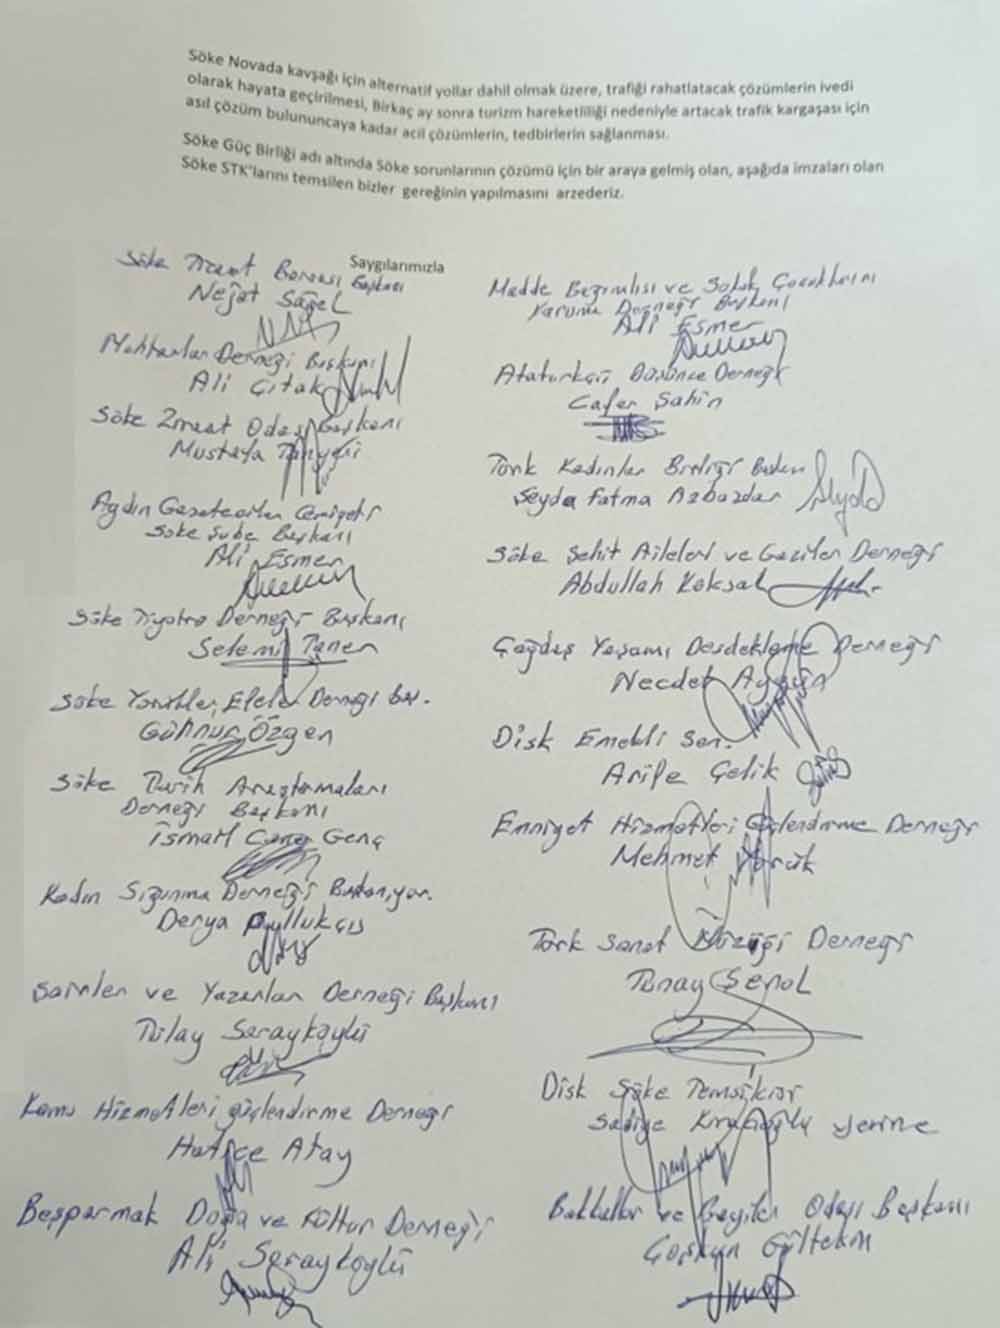 Söke Novada kavşağı için alternatif yollar dahil olmak üzere, trafiği rahatlatacak çözümlerin ivedi
olarak hayata geçirilmesi, Birkaç ay sonra turizm hareketliliği nedeniyle artacak trafik kargaşası için
asıl çözüm bulununcaya kadar acil çözümlerin, tedbirlerin sağlanması.
Söke Güç Birliği adı altında Söke sorunlarının çözümü için bir araya gelmiş olan, aşağıda imzaları olan
Söke STK'larını temsilen bizler gereğinin yapılmasını arzederiz.
Saygılarımızla
Söke Ticaret Borsası Başkanı
Nejat Sağel
Muhtarlar Derneği Başkanı
Ali Çıtak
Söke Ziraat Odası Başkanı
Mustafa
Aydın Gazeteciler Cemiyeti
Söke Şube Başkanı
Ali Esmer
Söke Tiyatro Derneği Başkanı
Selemi Taner
Söke Yörükler Derneği
Özgen
Söke Tarih Araştırmaları
Derneği Başkanı
İsmail Genç
Kadın Sığınma Derneği
Derya
ve Yazarlar Derneği Başkanı
Tülay Sarayköylü
Kamu Hizmetleri güçlendirme Derneği
Hatice Atay
Beşparmak Doğa ve Kültür Derneği
Ali Sarayköylü
Madde Bağımlısı ve Sokak Çocuklarını
Koruma Derneği Başkanı
Ali Esmer
Atatürkçü Düşünce Derneği
Cafer Şahin
Türk Kadınlar Birliği
Şeyda Fatma Azbazdar
Söke Şehit Aileleri ve Gaziler Derneği
Abdullah Köksal
Çağdaş Yaşamı Desdekleme Derneği
Necdet
Disk Emekli Sen.
Arife Çelik
Emniyet Hizmetleri Güçlendirme Derneği
Mehmet
Türk Sanat Müziği Derneği
Tunay Şenol
Disk Söke Temsilcisi
yerine
Bakkallar ve Odası Başkanı
Coşkun Gültekin